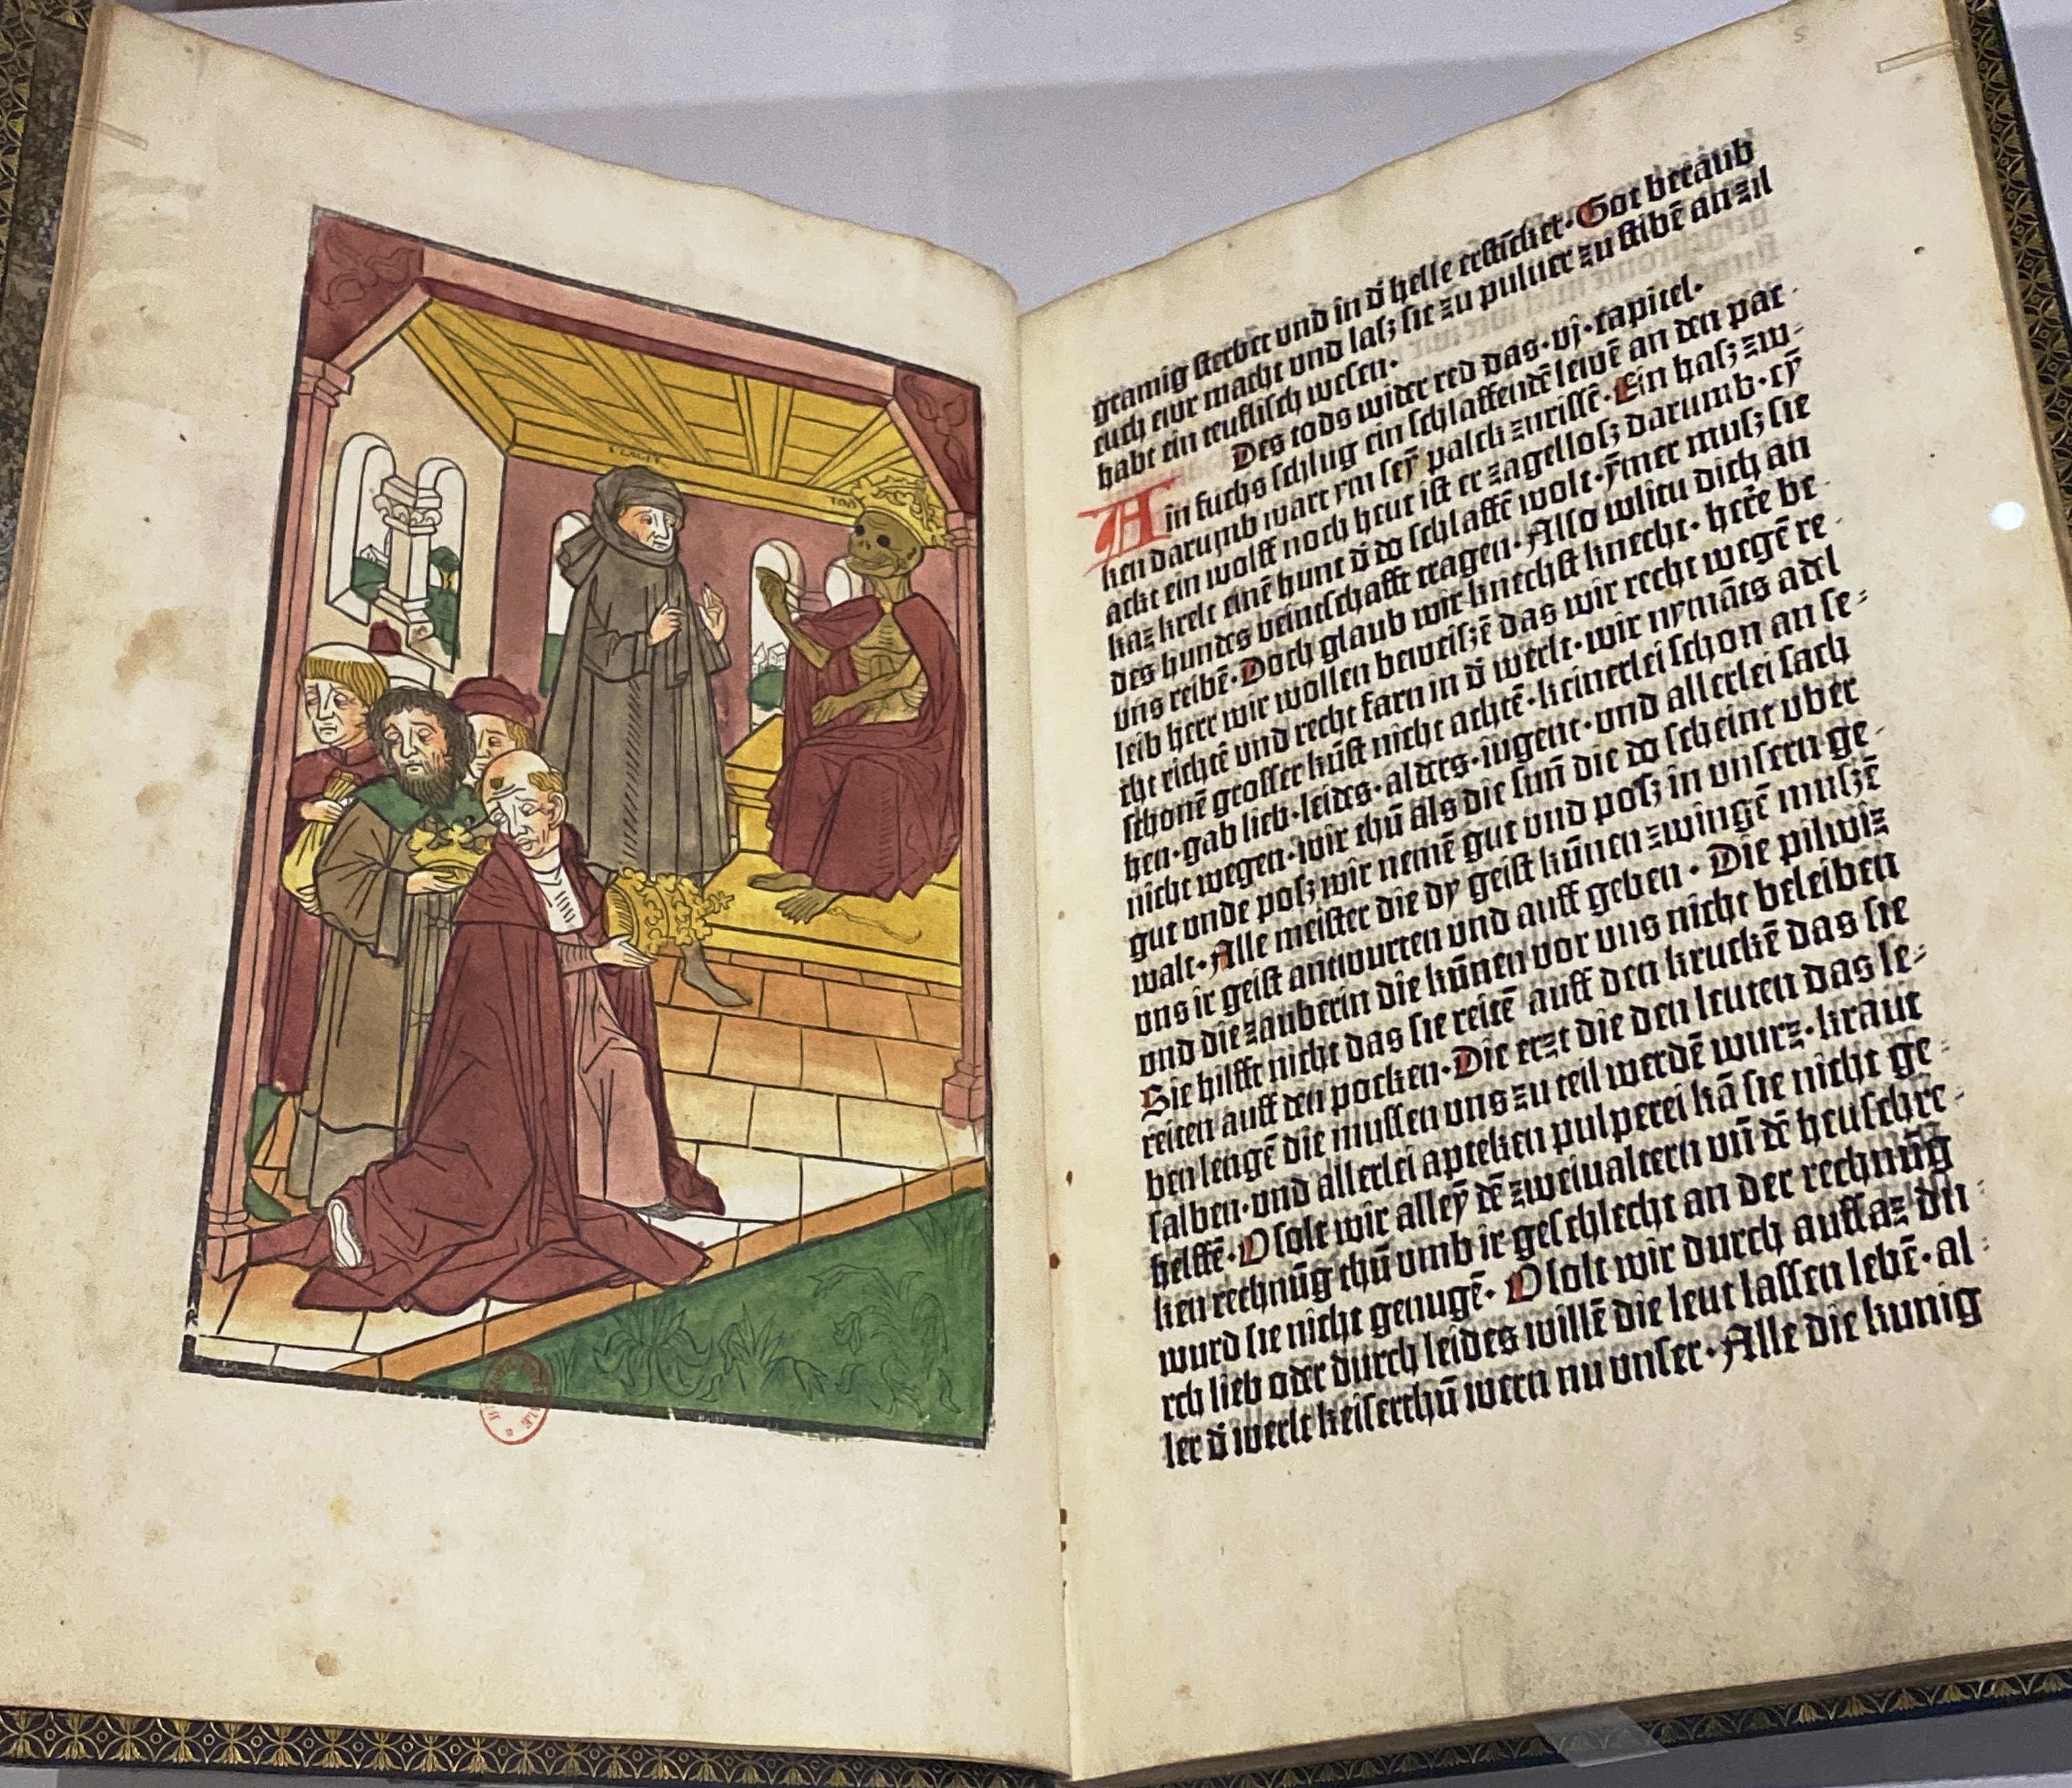 TOD
gramig sterbet vnd in d̄ helle erstu̇cket· Got beraub
euch ewr macht vnd laſʒ sie zu puluer zu stibē an zil
habt ein teuflisch wesen·
Des tods wider red das·vj·capitel·
Ain fuchs schlug ein schlaffendē lewē an den pac
ken darumb wart ym seȳ palck zurissē·Ein haſʒ zw-
ackt ein wolff noch heut ist er zagelloſʒ darumb·eȳ
kaz krelt einē hunt d̄ do schlaffē wolt·ȳmer muſʒ sie
des hundes veintschafft tragen·Also wiltu dich an
vns reibē·Doch glaub wir knechst knecht·herē be-
leib herr wir wollen beweiſʒē das wir recht wegē re-
cht richtē vnd recht farn in d̄ werlt·wir nymāts adel
schonē grosser kūst nicht achtē·keinerlei schon an se-
hen·gab lieb·leides·alters·iugent·vnd allerlei sach
nicht wegen·wir thū als die sun̄ die do scheint vber
gut vnde poſʒ wir nemē gut vnd poſʒ in vnsern ge-
walt·Alle meister die dy geist kūnen zwingē muſʒē
vns ir geist antwurten vnd auff geben·Die pilwiz
vnd die zauberin die kūnen vor vns nicht beleiben
Sie hilfft nicht das sie reitē auff den kruckē das sie
reiten auff den pocken·Die erzt die den leuten das le-
ben lengē die mussen vns zu teil werdē wurz·kraut
salben·vnd allerlei apteken pulperei kā sie nicht ge-
helffē·O solt wir alleȳ dē zweiualtern vn̄ dē heuschre-
ken rechnūg thū vmb ir geschlecht an der rechnūg
wurd sie nicht genugē·O solt wir durch auffaz du
rch lieb oder durch leides willē die leut lassen lebē·al-
ler d̄ werlt keiserthū wern nu vnser·Alle die kunig